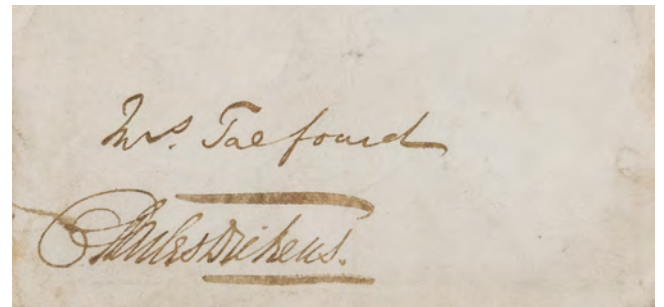 Mrs. Talfourd
Charles Dickens.